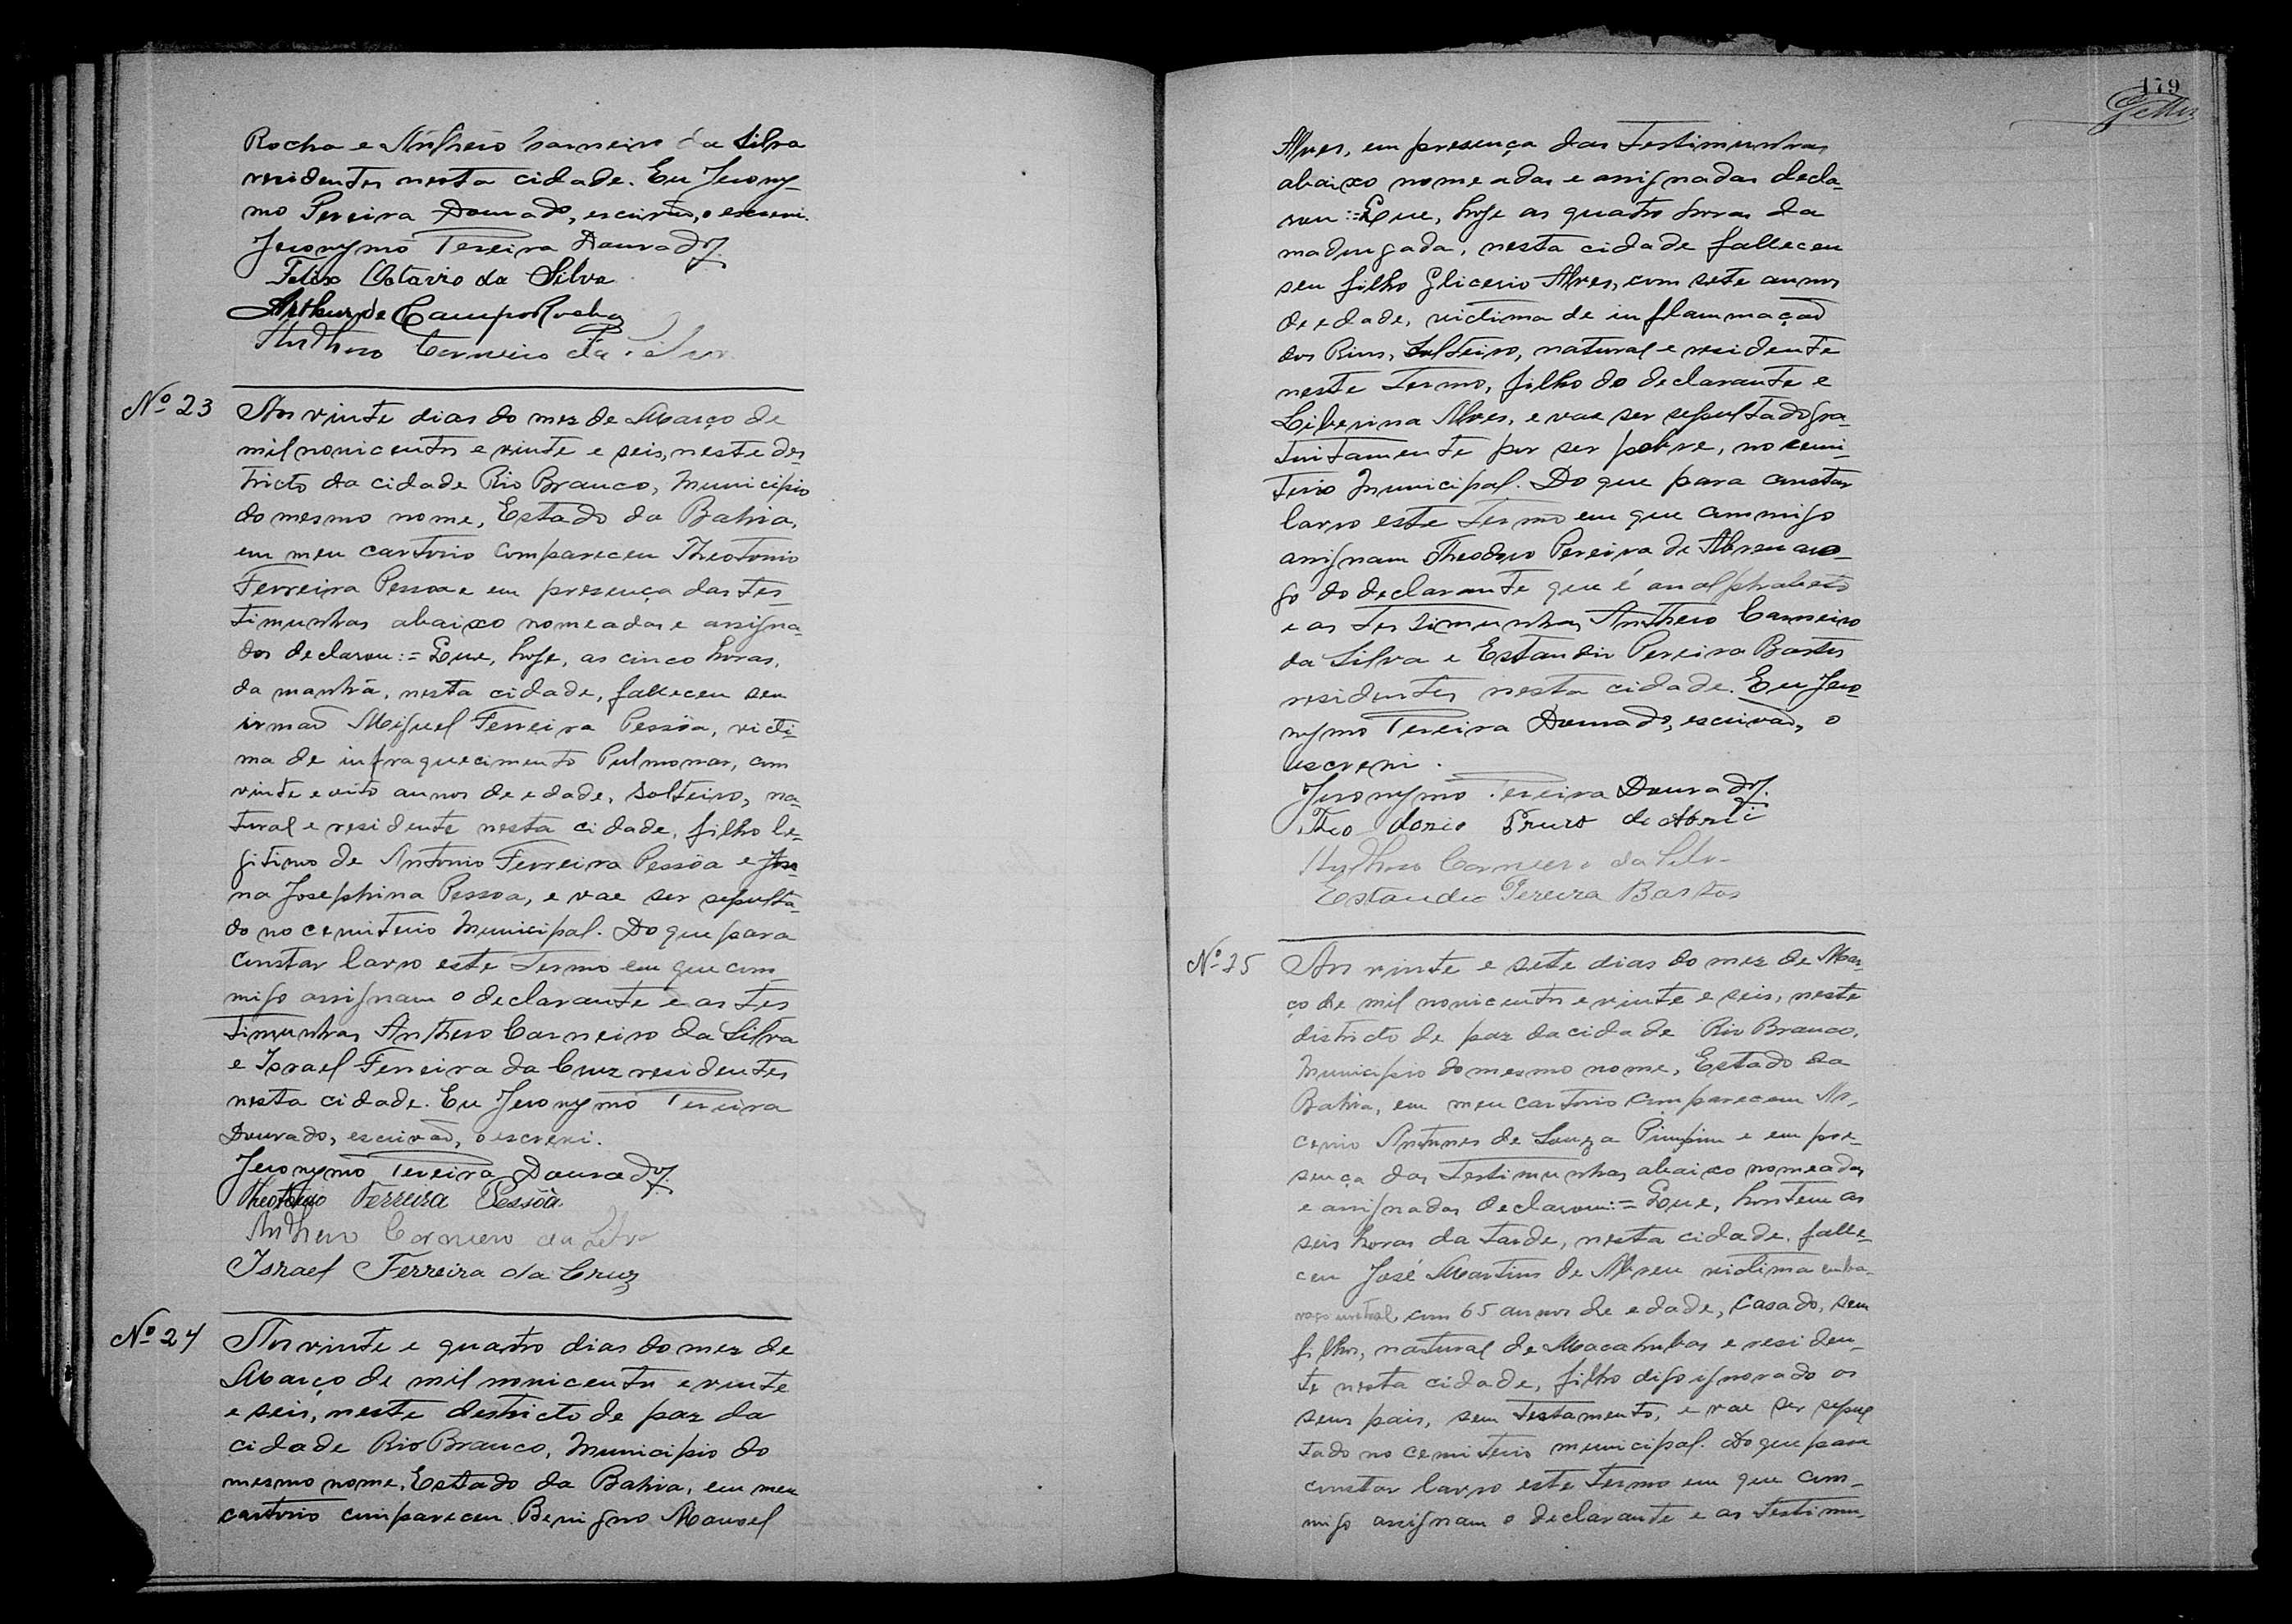 Rocha e Anthero Carneiro da Silva
residentes nesta cidade. Eu Jerony-
mo Pereira Dourado, escrivão, o escrevi.
Jeronymo Pereira Dourado
Felix Octavio da Silva
Arthur de Campos Rocha
Anthero Carneiro da Silva
Nº 23 Aos vinte dias do mez de Março de
mil novicentos e vinte e seis, neste des-
tricto da cidade Rio Branco, Municipio
do mesmo nome, Estado da Bahia,
em meu cartorio compareceu Theotonio
Ferreira Pessoa e em presença das tes-
timunhas abaixo nomeadas e assigna-
das declarou:= Que, hoje, as cinco horas,
da manhã, nesta cidade, falleceu seu
irmão Miguel Ferreira Pessôa, victi-
ma de infraquecimento Pulmonar, com
vinte e oito annos de edade, solteiro, na-
tural e residente nesta cidade, filho le-
gitimo de Antonio Ferreira Pessôa e
na Josephina Pessoa, e vae ser sepulta-
do no cemiterio Municipal. Do que para
constar lavro este termo em que com-
migo assignam o declarante e as tes
timunhas Anthero Carneiro da Silva
e Israel Ferreira da Cruz residentes
nesta cidade. Eu Jeronymo Pereira
Dourado, escrivão, o escrevi.
Jeronymo Pereira Dourado
Theotonio Ferreira Pessôa
Anthero Carneiro da Silva
Israel Ferreira da Cruz
Nº 24 Aos vinte e quatro dias do mez de
Março de mil novicentos e vinte
e seis, neste destricto de paz da
cidade Rio Branco, Municipio do
mesmo nome, Estado da Bahia, em meu
cartorio compareceu Benigno Manoel
179
Alves, em presença das testimunhas
abaixo nomeadas e assignadas decla-
rou:= Que, hoje as quatro horas da
madrugada, nesta cidade falleceu
seu filho Glicerio Alves, com sete annos
de edade, victima de inflammação
dos Rins, Solteiro, natural e residente
neste termo, filho do declarante e
Liberina Alves, e vae ser sepultado gra-
tuitamente por ser pobre, no cemi-
terio Municipal. Do que para constar
lavro este termo em que commigo
assignam Theodoro Pereira de Abreu aro-
go do declarante que é analphabeto
e as testimunhas Anthero Carneiro
da Silva e Estandio Pereira Bastos
residentes nesta cidade. Eu Jero-
nymo Pereira Dourado, escrivão, o
escrevi.
Jeronymo Pereira Dourado
Anthero Carneiro da Silva
Estandio Pereira Bastos
Nº 25 Aos vinte e sete dias do mez de Mar-
ço de mil novicentos e vinte e seis, neste
districto de paz da cidade Rio Branco,
Municipio do mesmo nome, Estado da
Bahia, em meu cartorio compareceu
Antunes de Souza Pimpim e em pre-
sença das testimunhas abaixo nomeadas
e assignadas declarou:= Que, hontem as
seis horas da tarde, nesta cidade, falle-
ceu José Martins de Abreu victima emba-
raço uretral, com 65 annos de edade, Casado, sem
filhos, natural de Macahubas e residen-
te nesta cidade, filho digo ignorado os
seus pais, sem testamento, e vae ser sepul
tado no cemiterio municipal. Do que para
constar lavro este termo em que com-
migo assignam o declarante e as testimu-